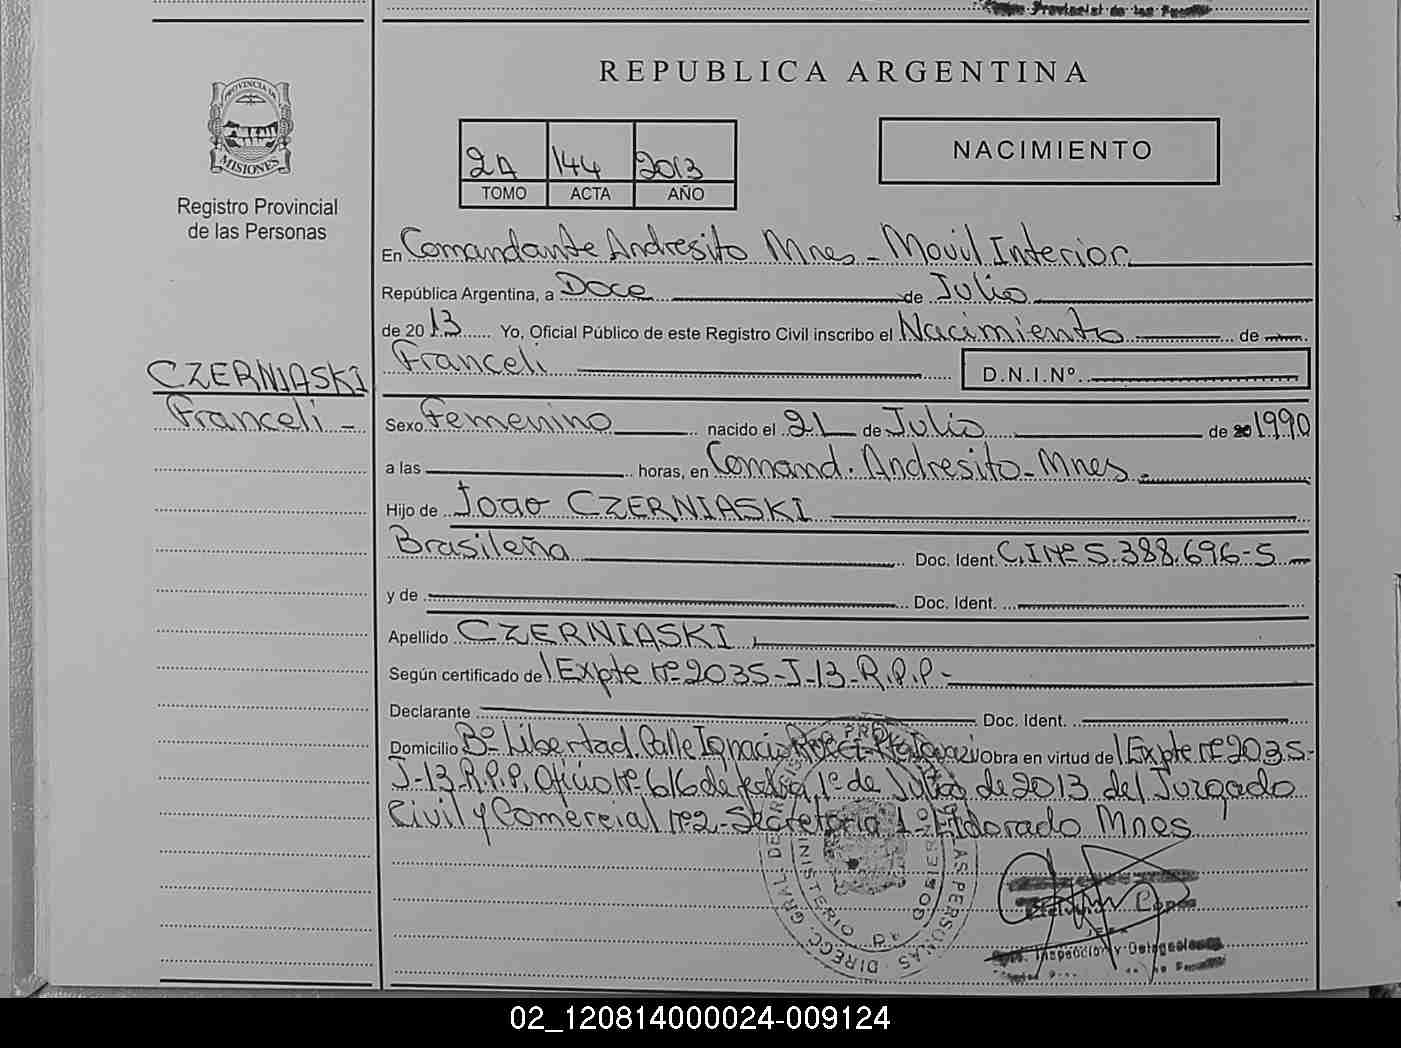 Provincial de las
REPUBLICA ARGENTINA
PROVINCIA DE
MISIONES
Registro Provincial
de las Personas
2A 144 2013
TOMO ACTA AÑO
NACIMIENTO
En Comandante Andresito Mnes - Movil Interior
República Argentina, a Doce de Julio
de 2013 Yo, Oficial Público de este Registro Civil inscribo el Nacimiento de
Franceli D.N.I.Nº
CZERNIASKI
Franceli -
Sexo Femenino nacido el 21 de Julio de 20 1990
a las horas, en Comand. Andresito - Mnes.
Hijo de Joao CZERNIASKI
Brasileña Doc. Ident. C.I Nº 5.388.696-5
y de Doc. Ident.
Apellido CZERNIASKI
Según certificado de Expte nº 2035-J-13-R.P.P-
Declarante Doc. Ident.
Domicilio Bº Libertad Calle Ignacio Obra en virtud de Expte nº 2035-
J-13-R.P.P, Oficio nº 616 de fecha 1º de Julio de 2013 del Juzgado
Civil y Comercial nº 2 - Secretaria 1 - Eldorado Mnes
JEFA
Inspección y
02_120814000024-009124